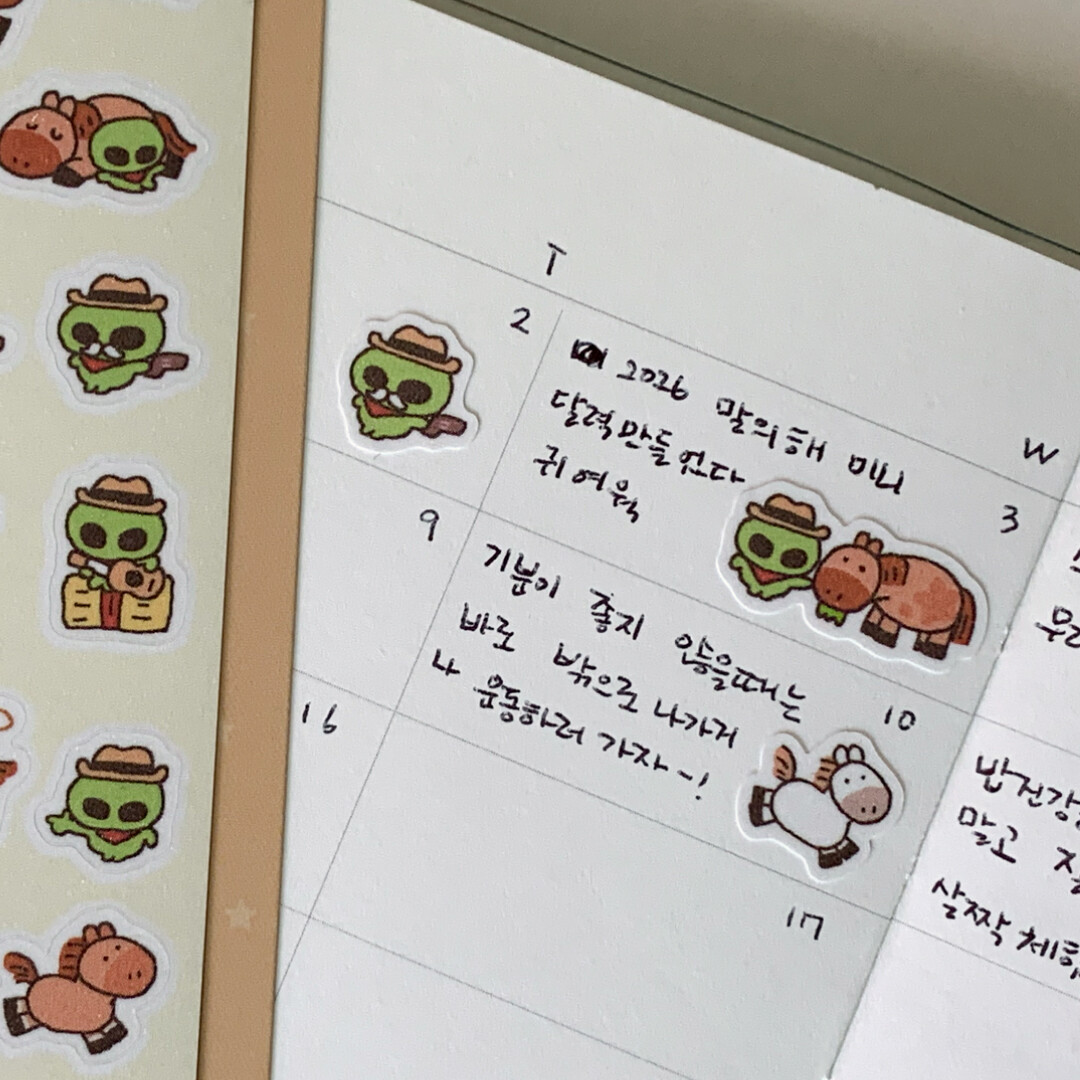 T
W
2
2026 말의해 미니
달력만들었다
귀여워
3
9
기분이 좋지 않을때는
바로 밖으로 나가거
나 운동하러 가자~!
10
16
17
밥건강
말고
살짝 체